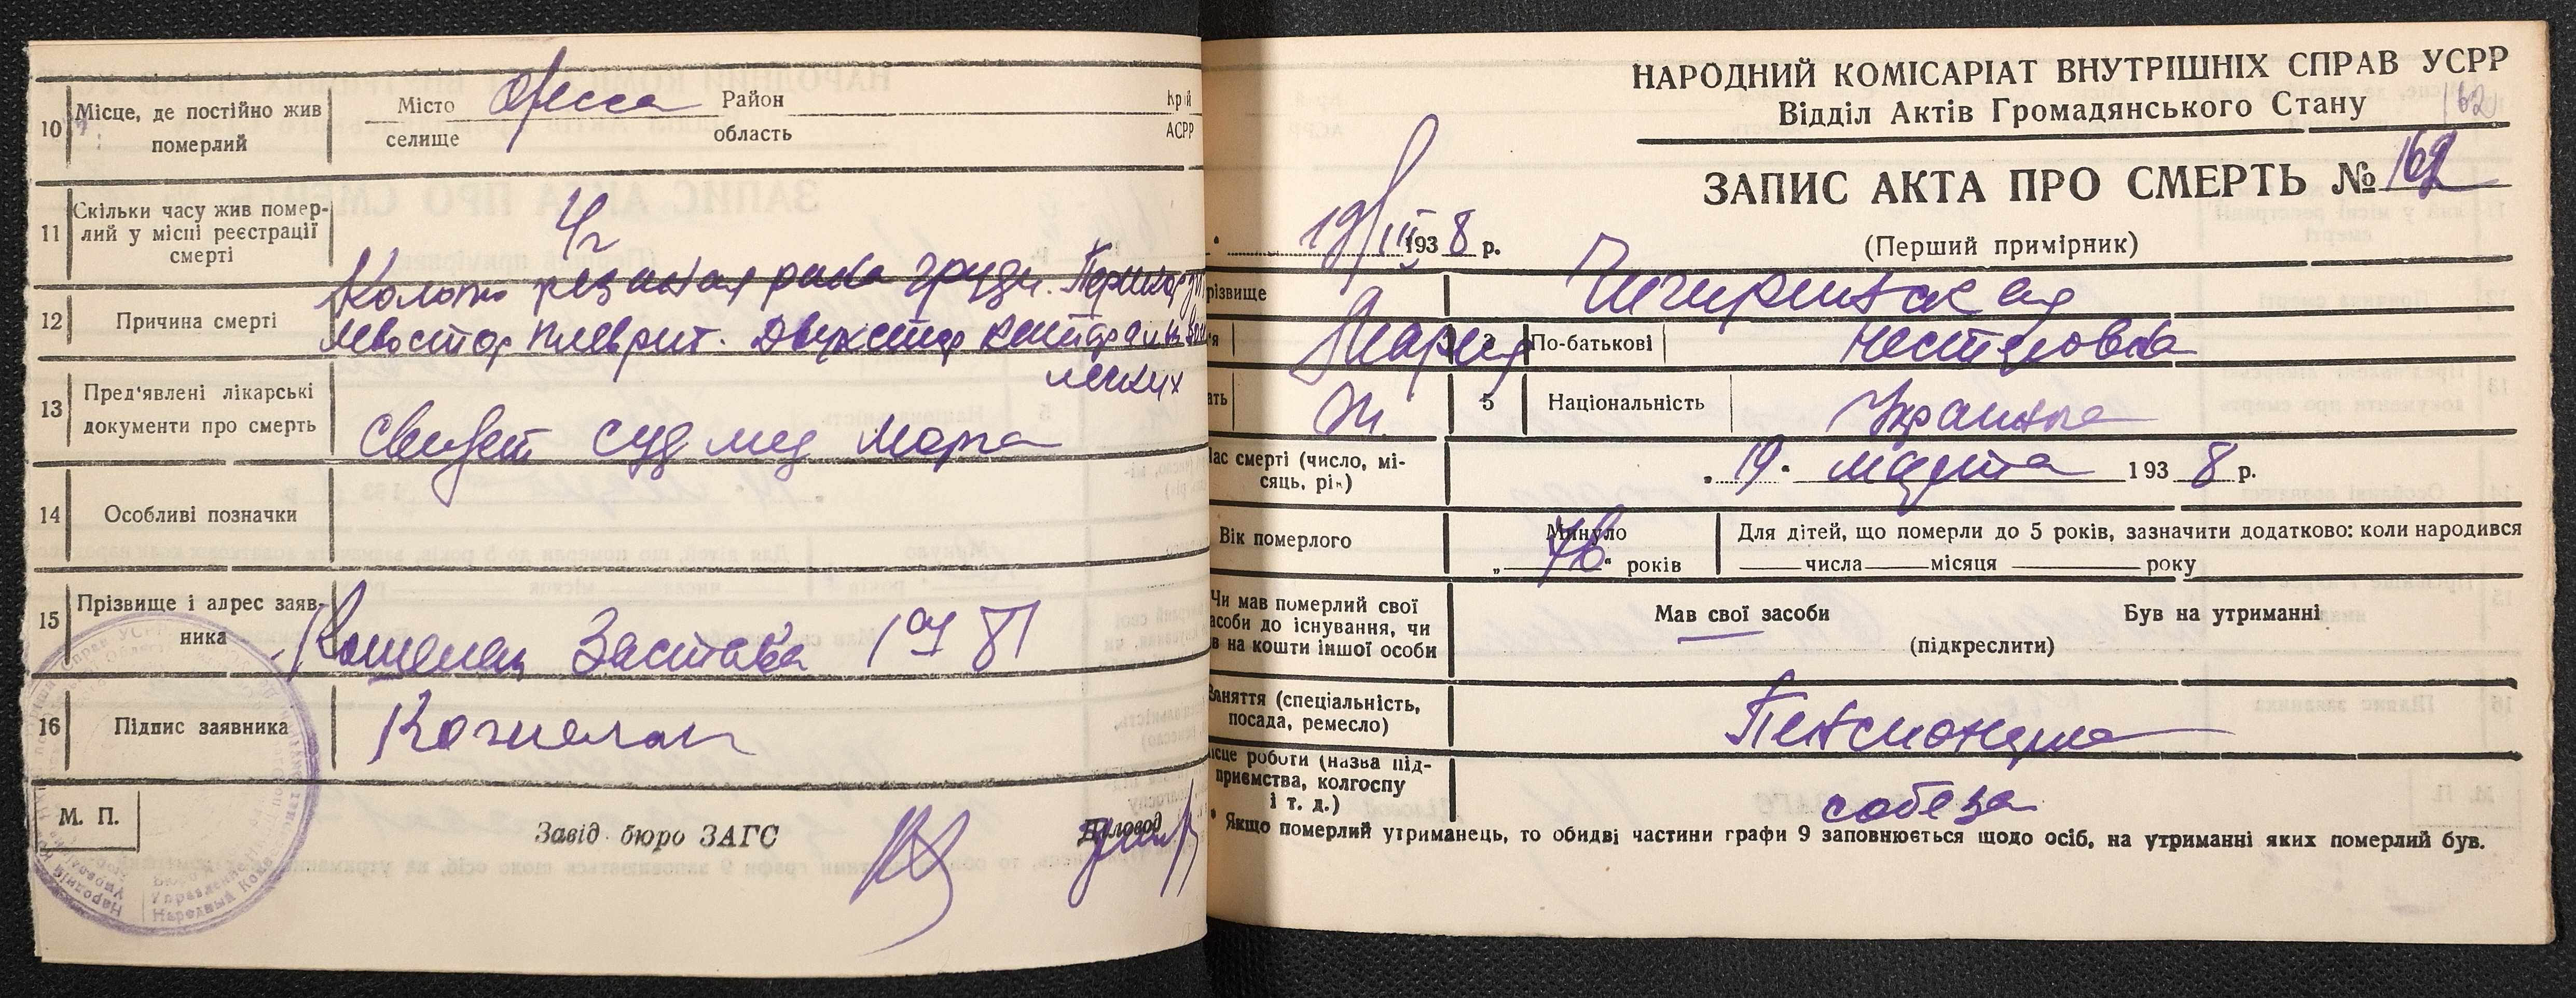 10
Місце, де постійно жив
померлий
Місто Одесса Район Край
селище область АСРР
11
Скільки часу жив помер-
лий у місці реєстрації
смерті
4 г
12
Причина смерті
Колото резаная рана груди.
левостор плеврит. Двухстор
легких
13
Пред'явлені лікарські
документи про смерть
Свидет суд мед морга
14
Особливі позначки
15
Прізвище і адрес заяв-
ника
Застава 1ая 81
16
Підпис заявника
М. П.
Завід бюро ЗАГС
Діловод
НАРОДНИЙ КОМІСАРІАТ ВНУТРІШНІХ СПРАВ УСРР
Відділ Актів Громадянського Стану
162
ЗАПИС АКТА ПРО СМЕРТЬ № 162
(Перший примірник)
19/III 1938 р.
різвище
Чигиринская
Мария
3 По-батькові
Несторовна
Ж.
5 Національність
Украинка
ас смерті (число, мі-
сяць, рік)
„19. марта 1938 р.
Вік померлого
Минуло
„76“ років
Для дітей, що померли до 5 років, зазначити додатково: коли народився
числа місяця року
Чи мав померлий свої
асоби до існування, чи
в на кошти іншої особи
Мав свої засоби Був на утриманні
(підкреслити)
Заняття (спеціальність,
посада, ремесло)
Пенсионерка
ісце роботи (назва під-
приємства, колгоспу
і т. д.)
собеза
* Якщо померлий утриманець, то обидві частини графи 9 заповнюється щодо осіб, на утриманні яких померлий був.